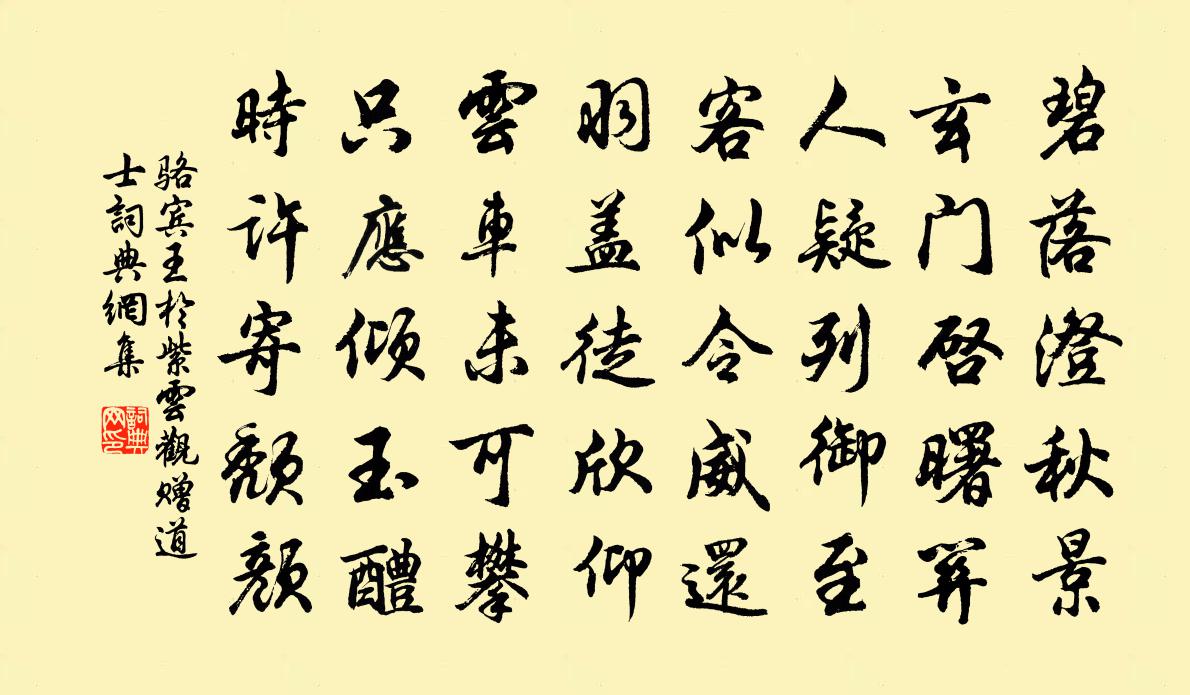 碧落澄秋景
玄门啓曙開
人疑列御至
客似令威還
羽盖徒欣仰
雲車未可攀
只應傾玉醴
時許寄頽顔
骆宾王於紫雲觀赠道
士詞典網集
詞典
网印